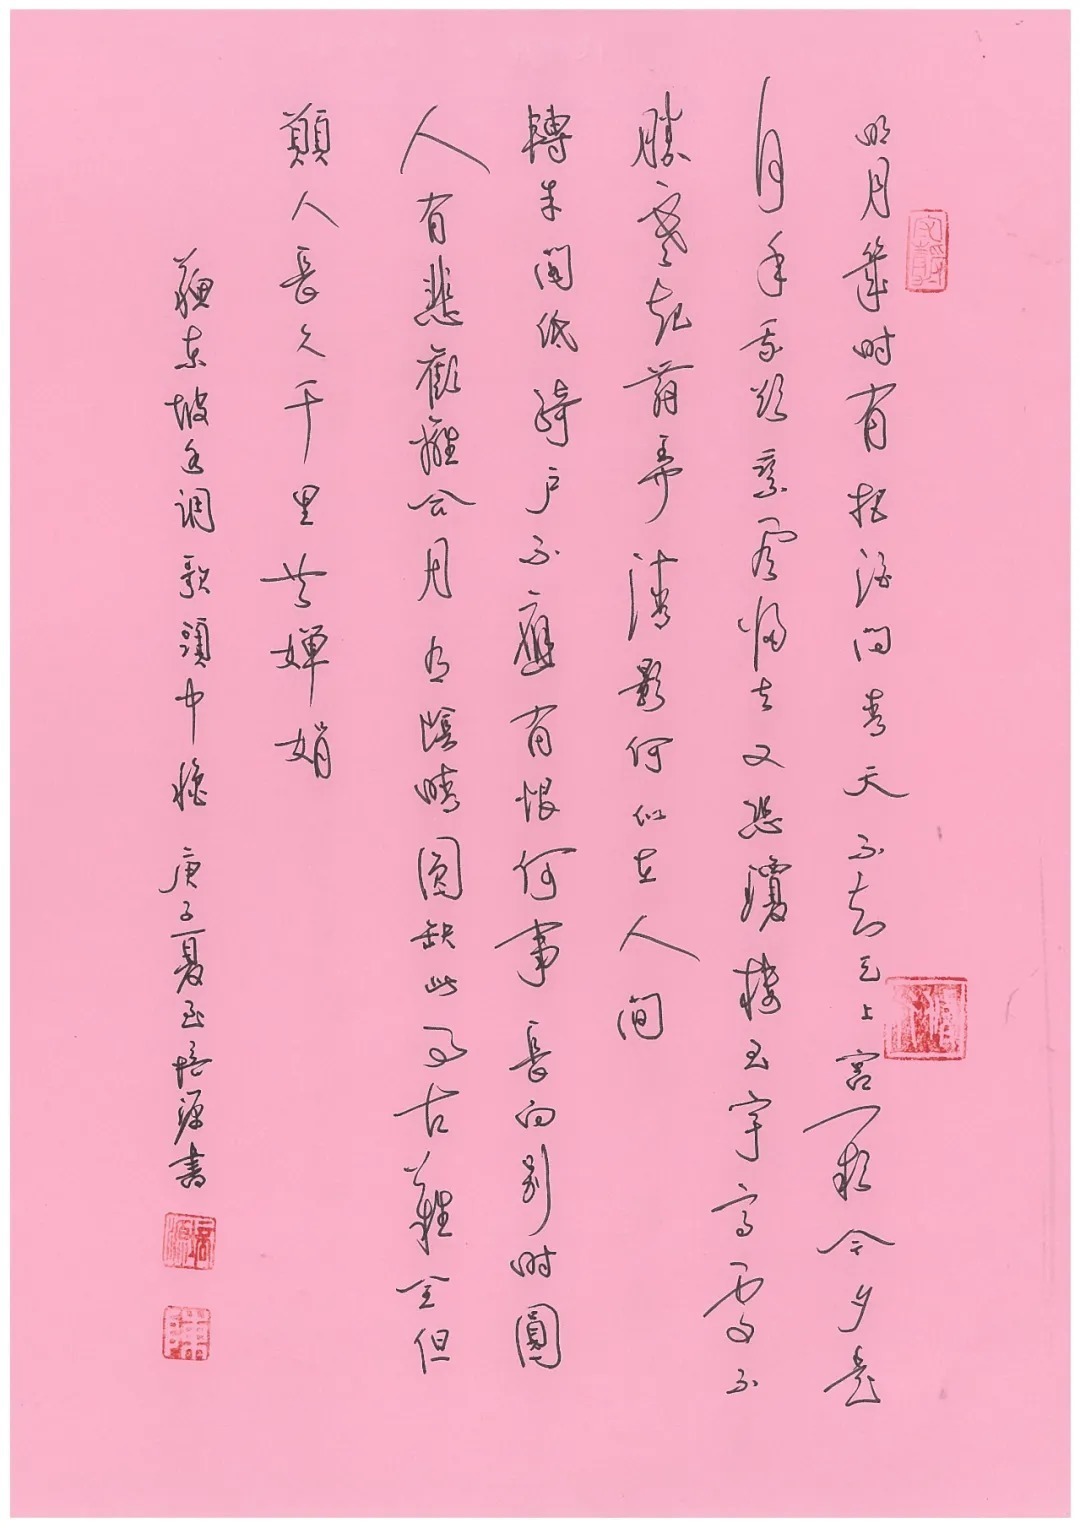 明月幾时有把酒问青天不知天上宫阙今夕是
何年我欲乘風歸去又恐瓊樓玉宇高處不
勝寒起舞弄清影何似在人间
轉朱閣低綺户不應有恨何事長向别时圓
人有悲歡離合月有陰晴圆缺此事古難全但
願人長久千里共嬋娟
蘇東坡水調歌頭中秋 庚子夏至培源書